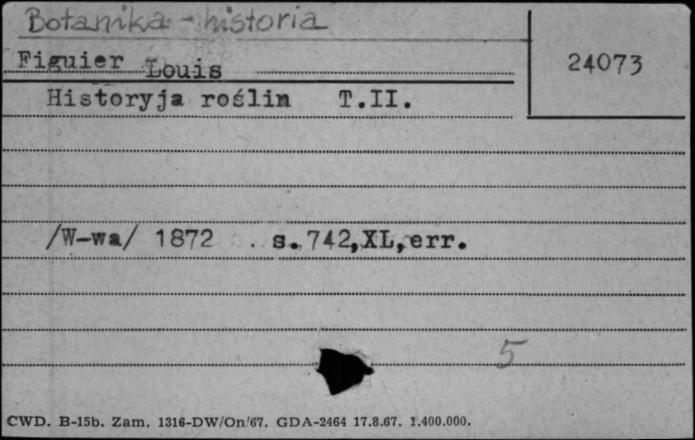 Botanika - historia
24073
Figuier Louis
Historyja roślin T.II.
/W-wa/ 1872 . s.742,XL,err.
5
CWD. B-15b. Zam. 1316-DW/On/67. GDA-2464 17.8.67. 1.400.000.